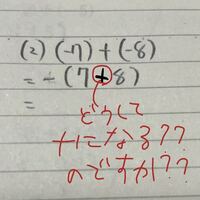 (2) (-7)+(-8)
= -(7+8)
=
どうして
+になる??
のですか??